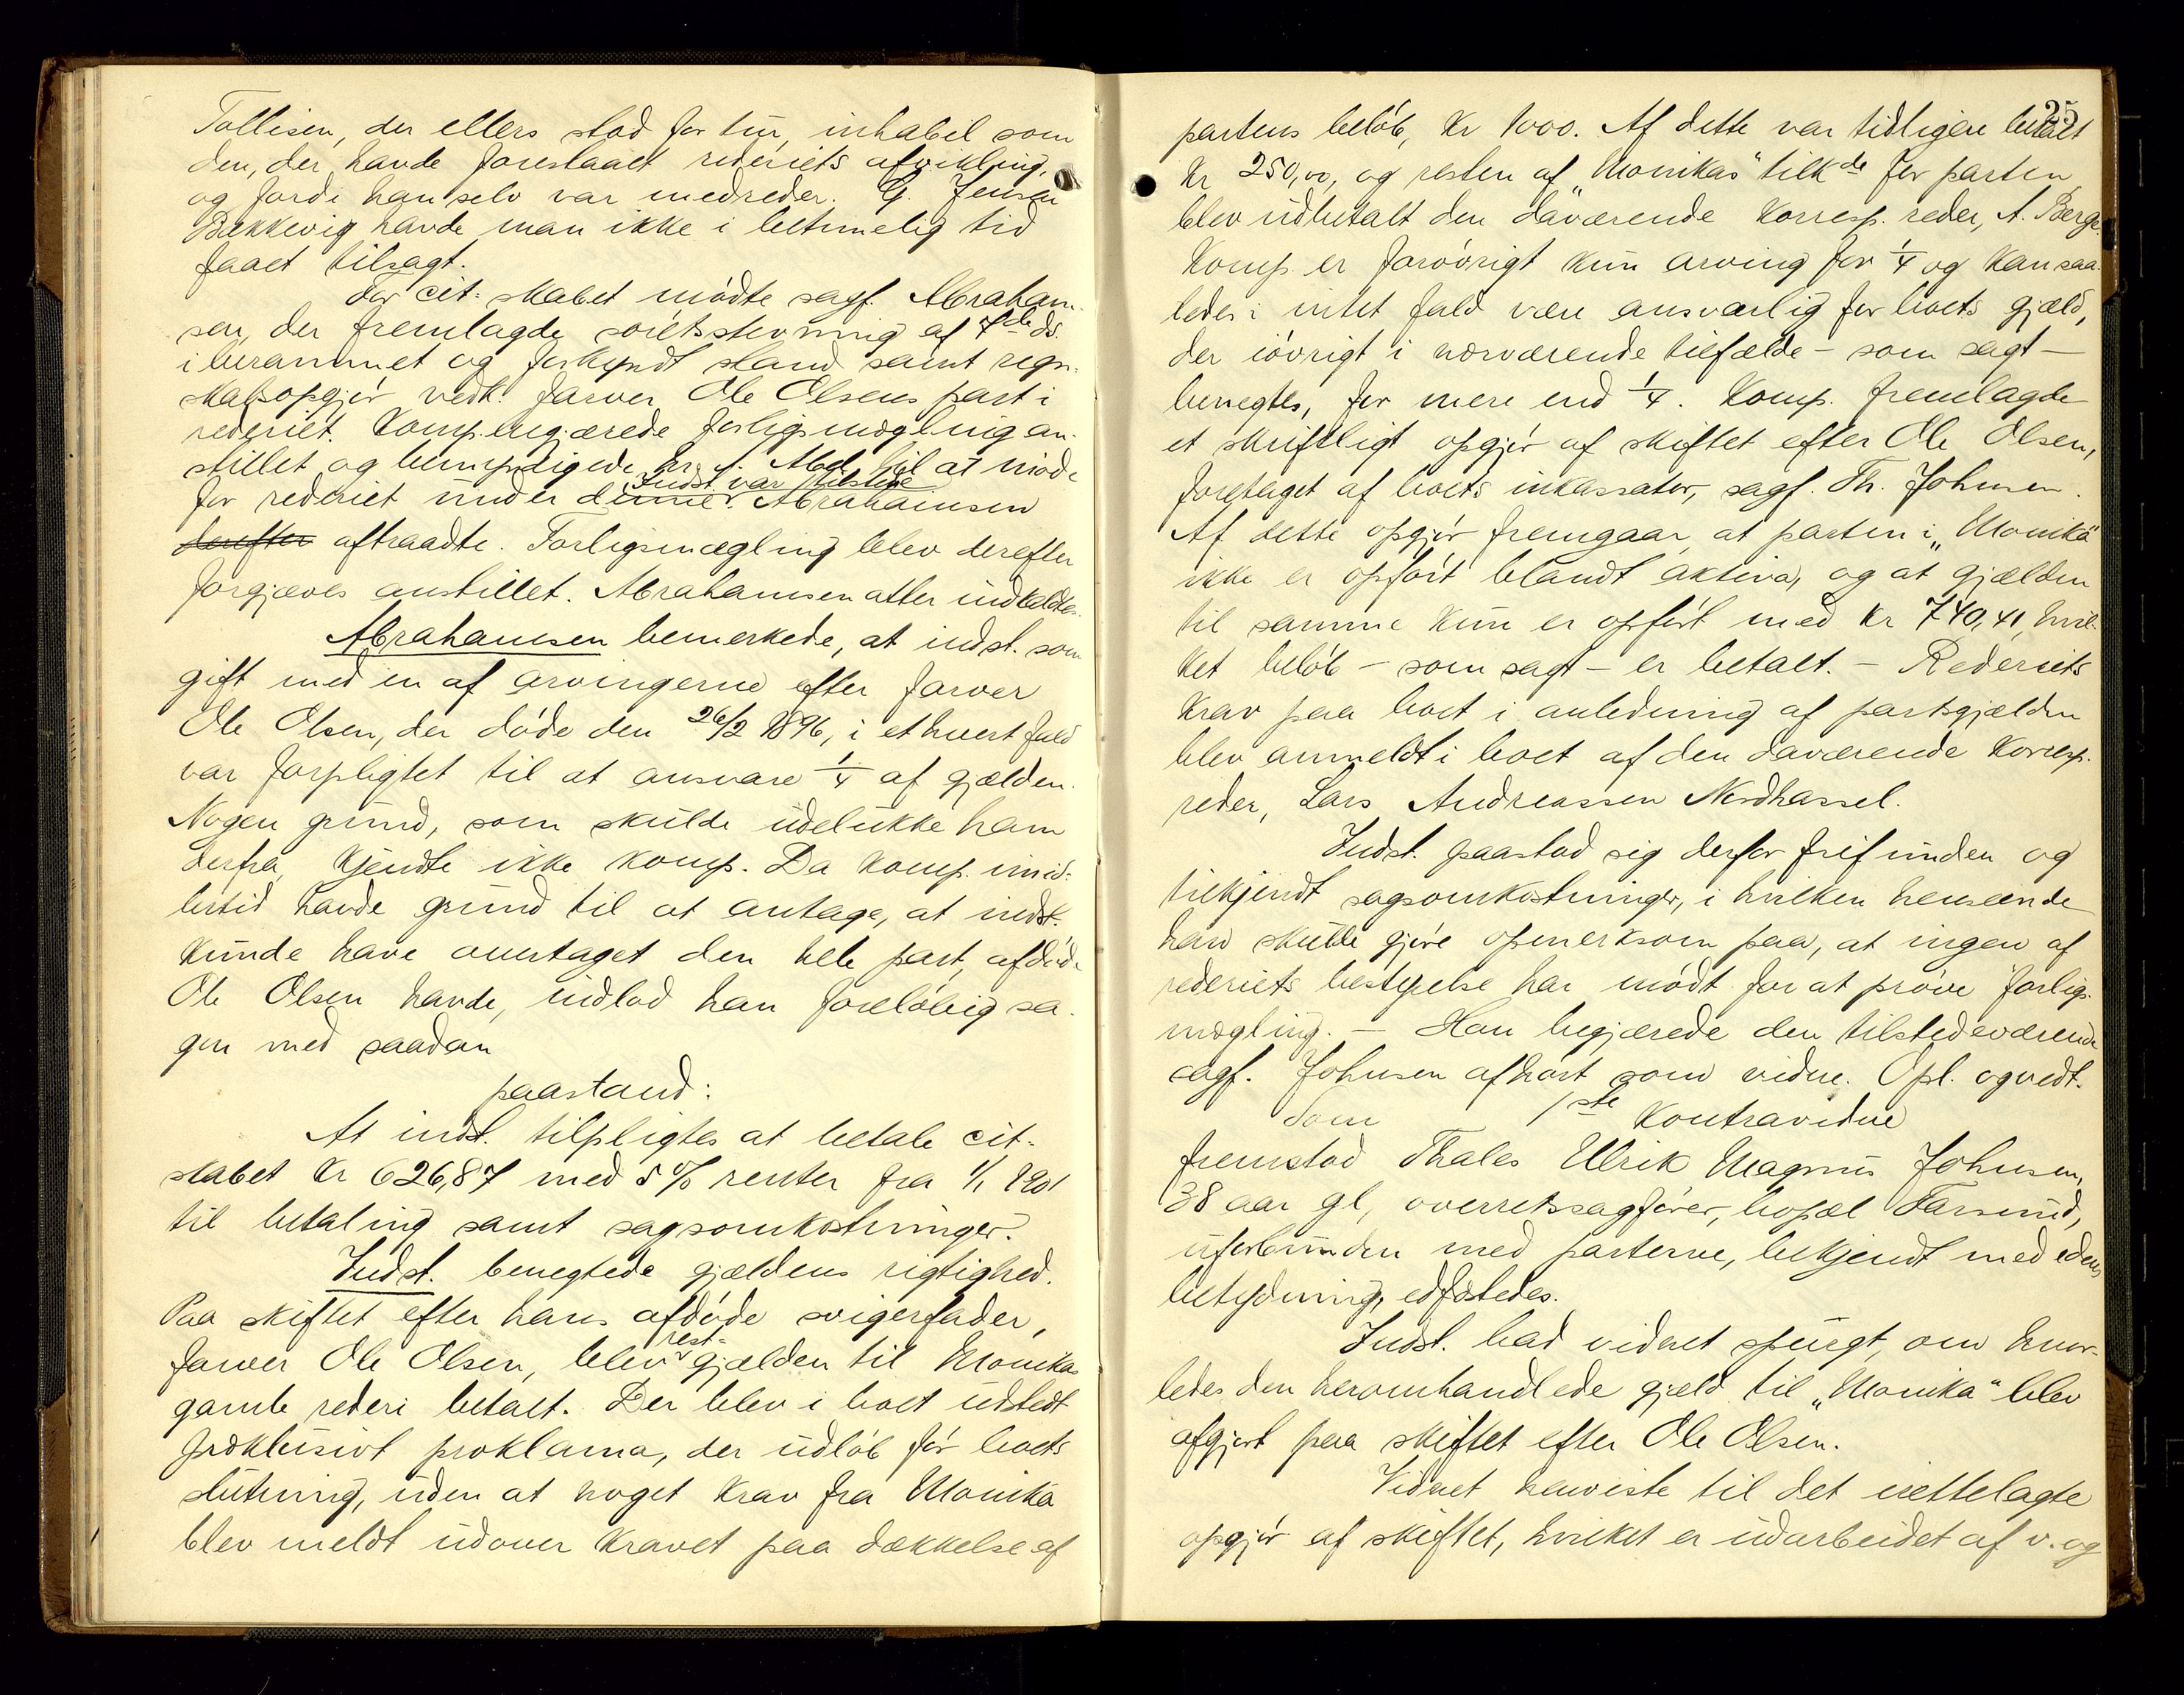 Tollisen, der ellers stod for tur, inhabil som
den, der havde forestaaet rederiets afvikling,
og fordi han selv var medreder. G. Jensen
Bækkevig havde man ikke i betimelig tid
faaet tilsagt.
For cit.skabet mødte sagf. Abraham-
sen, der fremlagde søretsstevning af 7de ds.
i berammet og forkyndt stand samt regn-
skabsopgjør vedk. farver Ole Olsens part i
rederiet. Komp. begjærede forligsmægling an-
stillet og bemyndigede hr. Abel til at møde
for rederiet under denne. Indst. var tilstede. Abrahamsen
derefter aftraadte. Forligsmægling blev derefter
forgjæves anstillet. Abrahamsen atter indkaldtes.
Abrahamsen bemerkede, at indst. som
gift med en af arvingerne efter farver
Ole Olsen, der døde den 26/2 1896, i ethvert fald
var forpligtet til at ansvare 1/4 af gjælden.
Nogen grund, som skulde udelukke ham
derfra, kjendte ikke komp. Da komp. imid-
lertid havde grund til at antage, at indst.
kunde have overtaget den hele part, afdøde
Ole Olsen havde, indlod han foreløbig sa-
gen med saadan
paastand:
At indst. tilpligtes at betale cit.-
skabet Kr 626,87 med 5 % renter fra 1/1 1901
til betaling samt sagsomkostninger.
Indst. benegtede gjældens rigtighed.
Paa skiftet efter hans afdøde svigerfader,
farver Ole Olsen, blev rest-gjælden til Monikas
gamle rederi betalt. Der blev i boet udstedt
præklusivt proklama, der udløb før boets
slutning, uden at noget krav fra Monika
blev meldt udover kravet paa dækkelse af
25
partens beløb, Kr 1000. Af dette var tidligere betalt
Kr 250,00, og resten af „Monikas" tilkde for parten
blev udbetalt den daværende korresp. reder, A. Berge.
Komp. er forøvrigt kun arving for 1/4 og kan saa-
ledes i intet fald være ansvarlig for boets gjæld,
der iøvrigt i nærværende tilfælde – som sagt –
benegtes, for mere end 1/4. Komp. fremlagde
et skriftligt opgjør af skiftet efter Ole Olsen,
foretaget af boets inkassator, sagf. Th. Johnsen.
Af dette opgjør fremgaar, at parten i „Monika"
ikke er opført blandt aktiva, og at gjælden
til samme kun er opført med Kr 740,41, hvil-
ket beløb – som sagt – er betalt. – Rederiets
krav paa boet i anledning af partsgjælden
blev anmeldt i boet af den daværende korresp.
reder, Lars Andreassen Nordhassel.
Indst. paastod sig derfor frifunden og
tilkjendt sagsomkostninger, i hvilken henseende
han skulde gjøre opmerksom paa, at ingen af
rederiets bestyrelse har mødt for at prøve forligs-
mægling. – Han begjærede den tilstedeværende
sagf. Johnsen afhørt som vidne. Opl. og vedt.
Som 1ste Kontravidne
fremstod Thales Ulrik Magnus Johnsen,
38 aar gl, overretssagfører, bopæl Farsund,
uforbunden med parterne, bekjendt med edens
betydning, edfæstedes.
Indst. bad vidnet spurgt, om hvor-
ledes den heromhandlede gjæld til „Monika" blev
afgjort paa skiftet efter Ole Olsen.
Vidnet henviste til det irettelagte
opgjør af skiftet, hvilket er udarbeidet af v. og